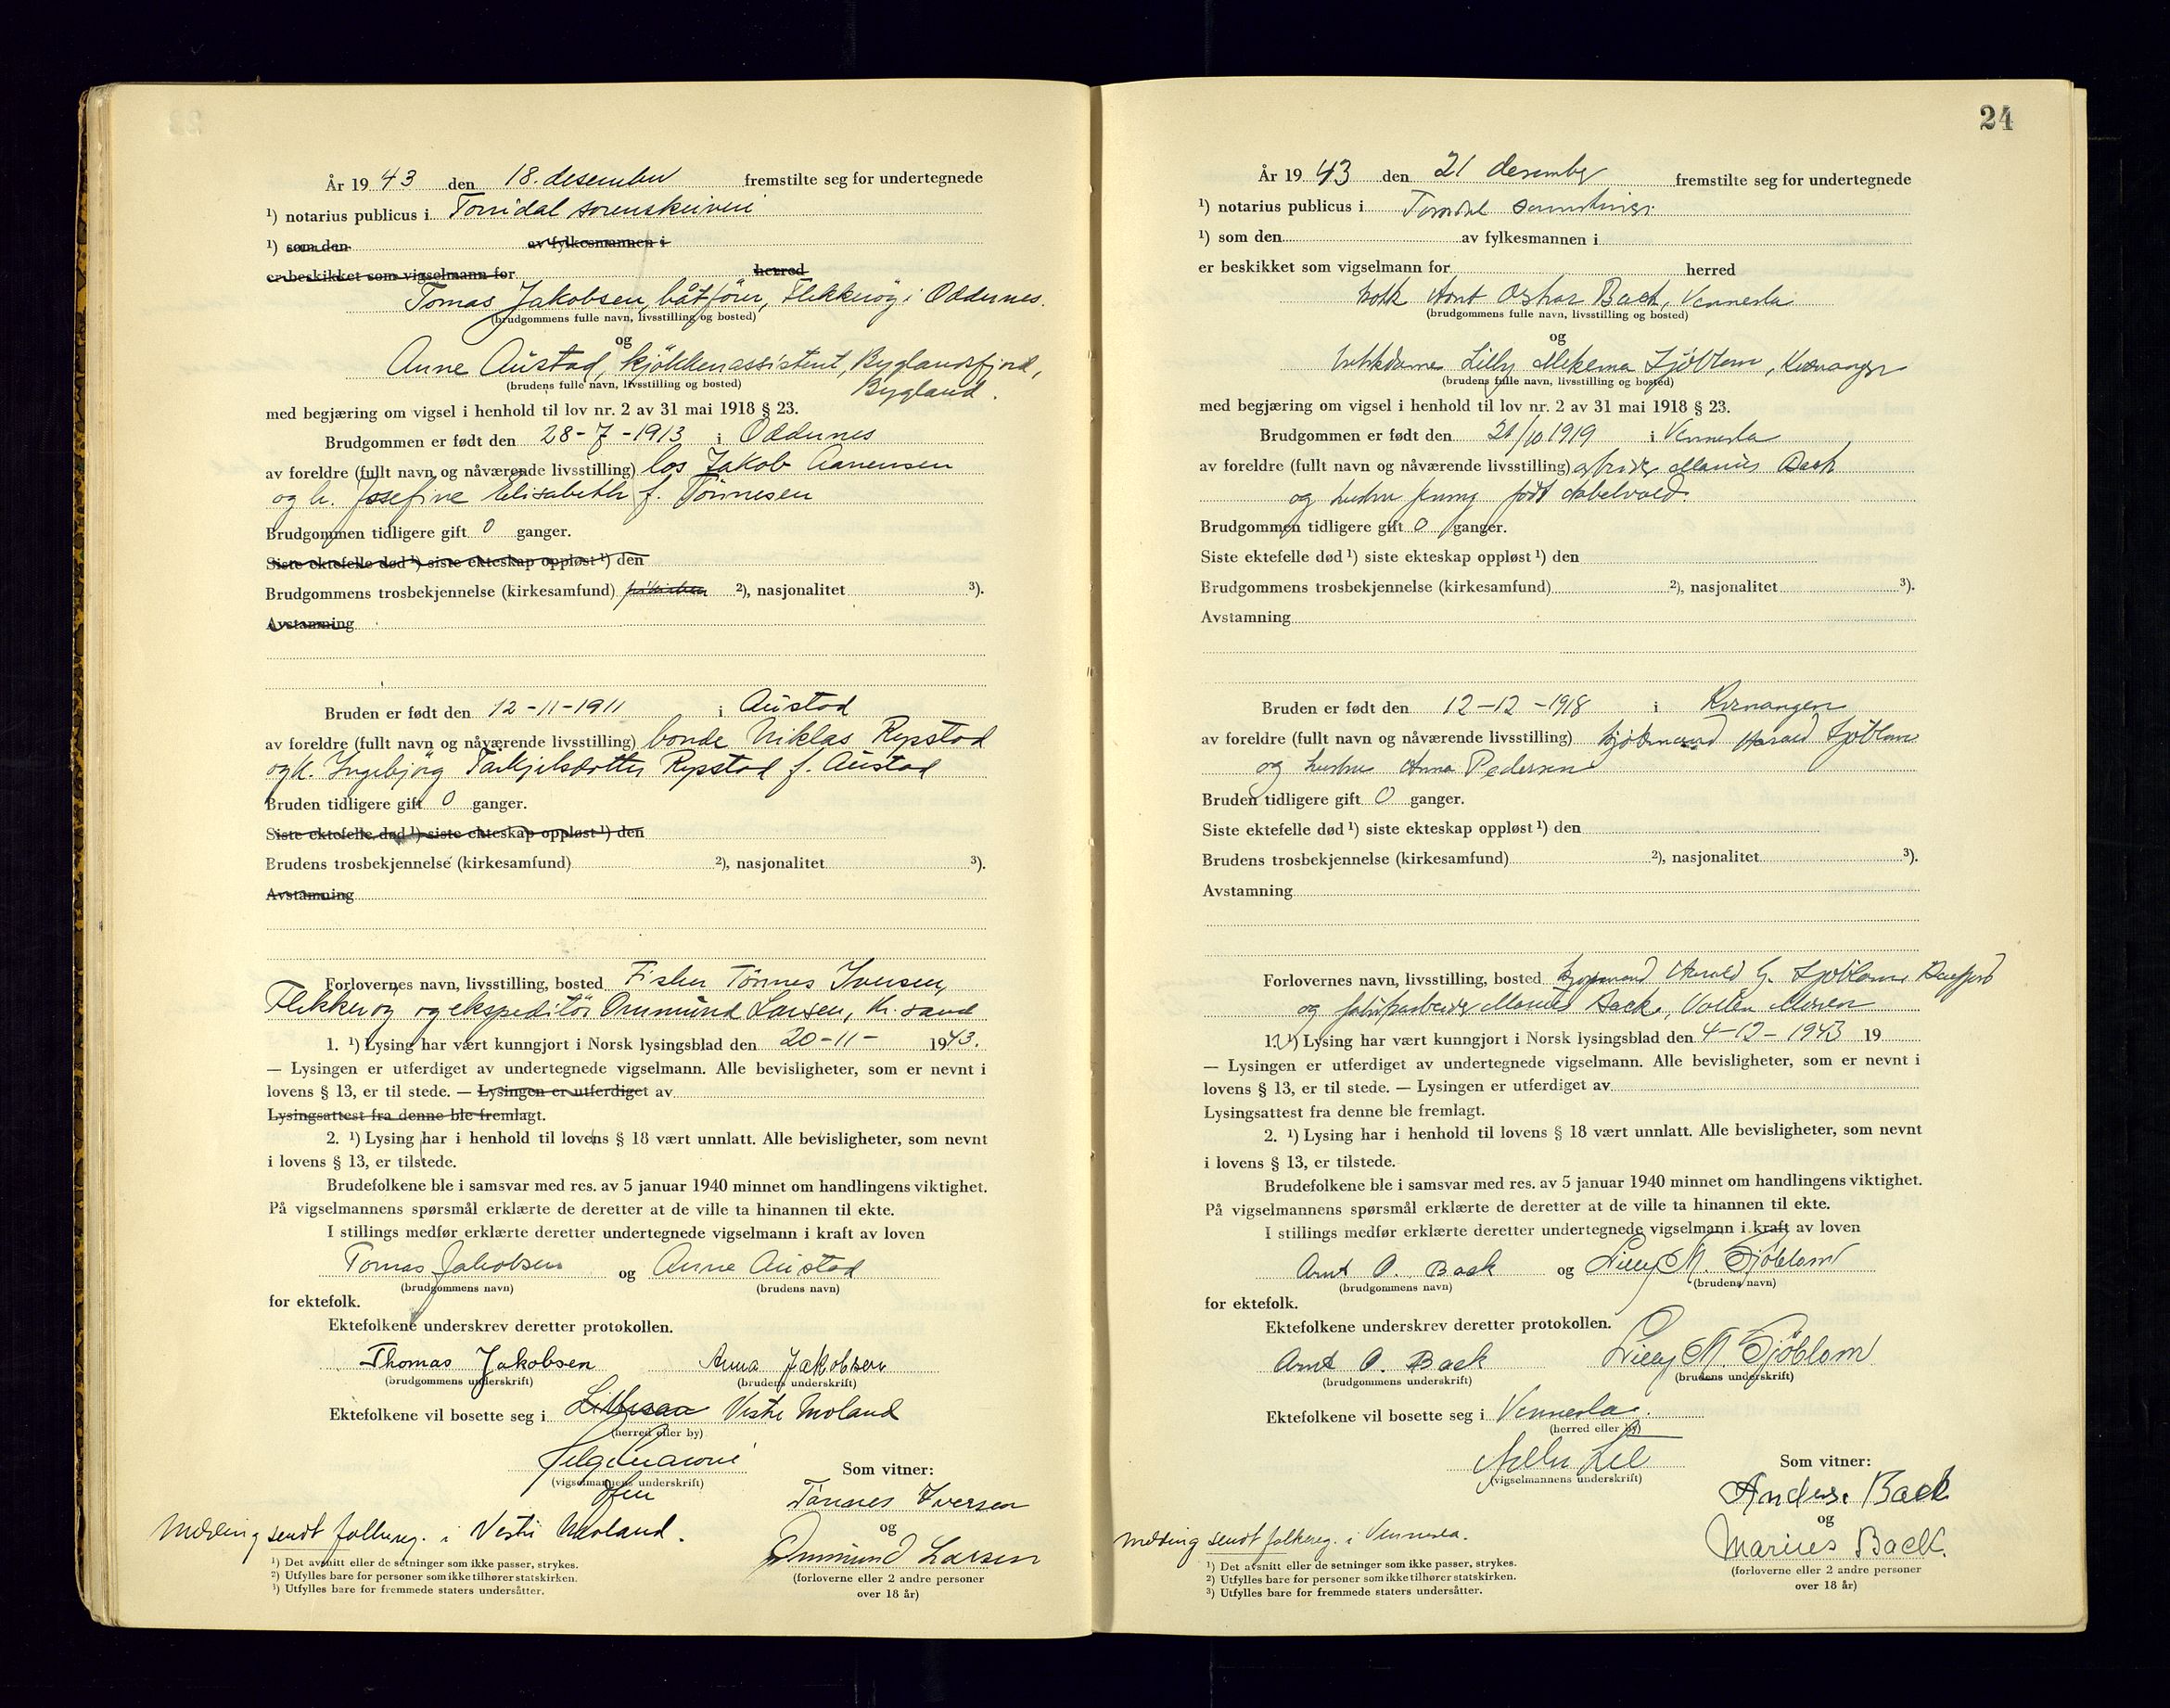 År 19 43 den 18. desember fremstilte seg for undertegnede
¹) notarius publicus i Torridal sorenskriveri
¹) som den av fylkesmannen i
er beskikket som vigselmann for herred
Tomas Jakobsen, båtfører, Flekkerøy i Oddernes.
(brudgommens fulle navn, livsstilling og bosted)
og
Anne Austad, kjøkkenassistent, Byglandsfjord,
(brudens fulle navn, livsstilling og bosted) Bygland.
med begjæring om vigsel i henhold til lov nr. 2 av 31 mai 1918 § 23.
Brudgommen er født den 28-7-1913 i Oddernes
av foreldre (fullt navn og nåværende livsstilling) los Jakob Aanensen
og h. Josefine Elisabeth f. Tönnesen
Brudgommen tidligere gift 0 ganger.
Siste ektefelle død ¹) siste ekteskap oppløst ¹) den
Brudgommens trosbekjennelse (kirkesamfund) ²), nasjonalitet ³).
Avstamning
Bruden er født den 12-11-1911 i Austad
av foreldre (fullt navn og nåværende livsstilling) bonde Niklas Rysstad
og h. Ingebjörg Tarkjelsdotter Rysstad f. Austad
Bruden tidligere gift 0 ganger.
Siste ektefelle død ¹) siste ekteskap oppløst ¹) den
Brudens trosbekjennelse (kirkesamfund) ²), nasjonalitet ³).
Avstamning
Forlovernes navn, livsstilling, bosted Fisker Tönnes Iversen,
Flekkeröy og ekspeditör Ommund Larsen, Kr. sand
1. ¹) Lysing har vært kunngjort i Norsk lysingsblad den 20-11- 1943.
— Lysingen er utferdiget av undertegnede vigselmann. Alle bevisligheter, som er nevnt i
lovens § 13, er til stede. — Lysingen er utferdiget av
Lysingsattest fra denne ble fremlagt.
2. ¹) Lysing har i henhold til lovens § 18 vært unnlatt. Alle bevisligheter, som nevnt
i lovens § 13, er tilstede.
Brudefolkene ble i samsvar med res. av 5 januar 1940 minnet om handlingens viktighet.
På vigselmannens spørsmål erklærte de deretter at de ville ta hinannen til ekte.
I stillings medfør erklærte deretter undertegnede vigselmann i kraft av loven
Tomas Jakobsen og Anne Austad
(brudgommens navn) (brudens navn)
for ektefolk.
Ektefolkene underskrev deretter protokollen.
Thomas Jakobsen Anna Jakobsen
(brudgommens underskrift) (brudens underskrift)
Ektefolkene vil bosette seg i Lillesand Vestre Moland
(herred eller by)
Som vitner:
(vigselmannens underskrift)
Tönnes Iversen
og
Melding sendt folkereg. i Vestre Moland.
Ommund Larsen
(forloverne eller 2 andre personer
over 18 år)
¹) Det avsnitt eller de setninger som ikke passer, strykes.
²) Utfylles bare for personer som ikke tilhører statskirken.
³) Utfylles bare for fremmede staters undersåtter.
24
År 19 43 den 21 desember fremstilte seg for undertegnede
¹) notarius publicus i Torridal sorenskriveri
¹) som den av fylkesmannen i
er beskikket som vigselmann for herred
Arnt Oskar Back, Vennesla
(brudgommens fulle navn, livsstilling og bosted)
og
Lilly Sjöblom, Kvænangen
(brudens fulle navn, livsstilling og bosted)
med begjæring om vigsel i henhold til lov nr. 2 av 31 mai 1918 § 23.
Brudgommen er født den 21/10 1919 i Vennesla
av foreldre (fullt navn og nåværende livsstilling) Marius Back
og hustru Jenny født Aabelvold.
Brudgommen tidligere gift 0 ganger.
Siste ektefelle død ¹) siste ekteskap oppløst ¹) den
Brudgommens trosbekjennelse (kirkesamfund) ²), nasjonalitet ³).
Avstamning
Bruden er født den 12-12-1918 i Kvænangen
av foreldre (fullt navn og nåværende livsstilling) kjøbmand Harald Sjöblom
og hustru Anna Pedersen
Bruden tidligere gift 0 ganger.
Siste ektefelle død ¹) siste ekteskap oppløst ¹) den
Brudens trosbekjennelse (kirkesamfund) ²), nasjonalitet ³).
Avstamning
Forlovernes navn, livsstilling, bosted kjøpmand Harald G. Sjöblom
og fabrikarbeider Marius Back, Mosen
1. ¹) Lysing har vært kunngjort i Norsk lysingsblad den 4-12-1943 19
— Lysingen er utferdiget av undertegnede vigselmann. Alle bevisligheter, som er nevnt i
lovens § 13, er til stede. — Lysingen er utferdiget av
Lysingsattest fra denne ble fremlagt.
2. ¹) Lysing har i henhold til lovens § 18 vært unnlatt. Alle bevisligheter, som nevnt
i lovens § 13, er tilstede.
Brudefolkene ble i samsvar med res. av 5 januar 1940 minnet om handlingens viktighet.
På vigselmannens spørsmål erklærte de deretter at de ville ta hinannen til ekte.
I stillings medfør erklærte deretter undertegnede vigselmann i kraft av loven
Arnt O. Back og Lilly M. Sjöblom
(brudgommens navn) (brudens navn)
for ektefolk.
Ektefolkene underskrev deretter protokollen.
Arnt O. Back Lilly M. Sjöblom
(brudgommens underskrift) (brudens underskrift)
Ektefolkene vil bosette seg i Vennesla.
(herred eller by)
Som vitner:
(vigselmannens underskrift)
Anders Back
og
Melding sendt folkereg. i Vennesla.
Marius Back.
(forloverne eller 2 andre personer
over 18 år)
¹) Det avsnitt eller de setninger som ikke passer, strykes.
²) Utfylles bare for personer som ikke tilhører statskirken.
³) Utfylles bare for fremmede staters undersåtter.